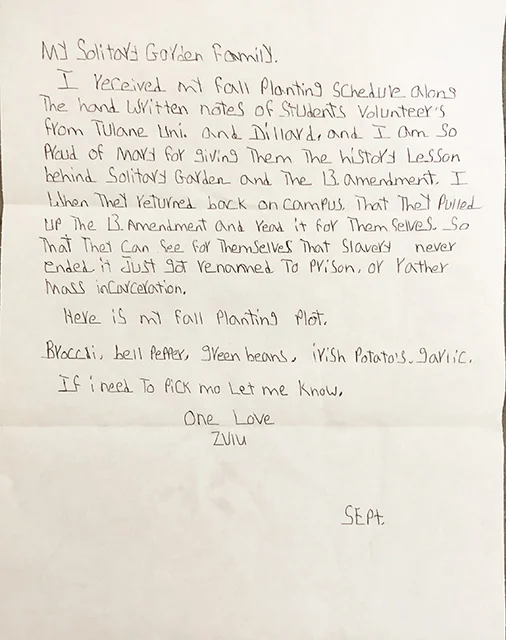 My Solitary Garden Family.
I received my fall Planting schedule along
The hand written notes of students volunteer's
from Tulane Uni. and Dillard, and I am so
Proud of Mary for giving Them The history Lesson
behind Solitary Garden and The 13. amendment. I
When They returned back on campus. That They Pulled
up The 13. Amendment and read it for Them selves. So
That They Can See for Themselves That Slavery never
ended it Just got renamed To Prison, or rather
Mass incarceration.
Here is my fall Planting Plot.
Broccli, bell Pepper, green beans, irish Potato's. garlic.
If i need To Pick mo Let me Know.
One Love
Zulu
SEPt.